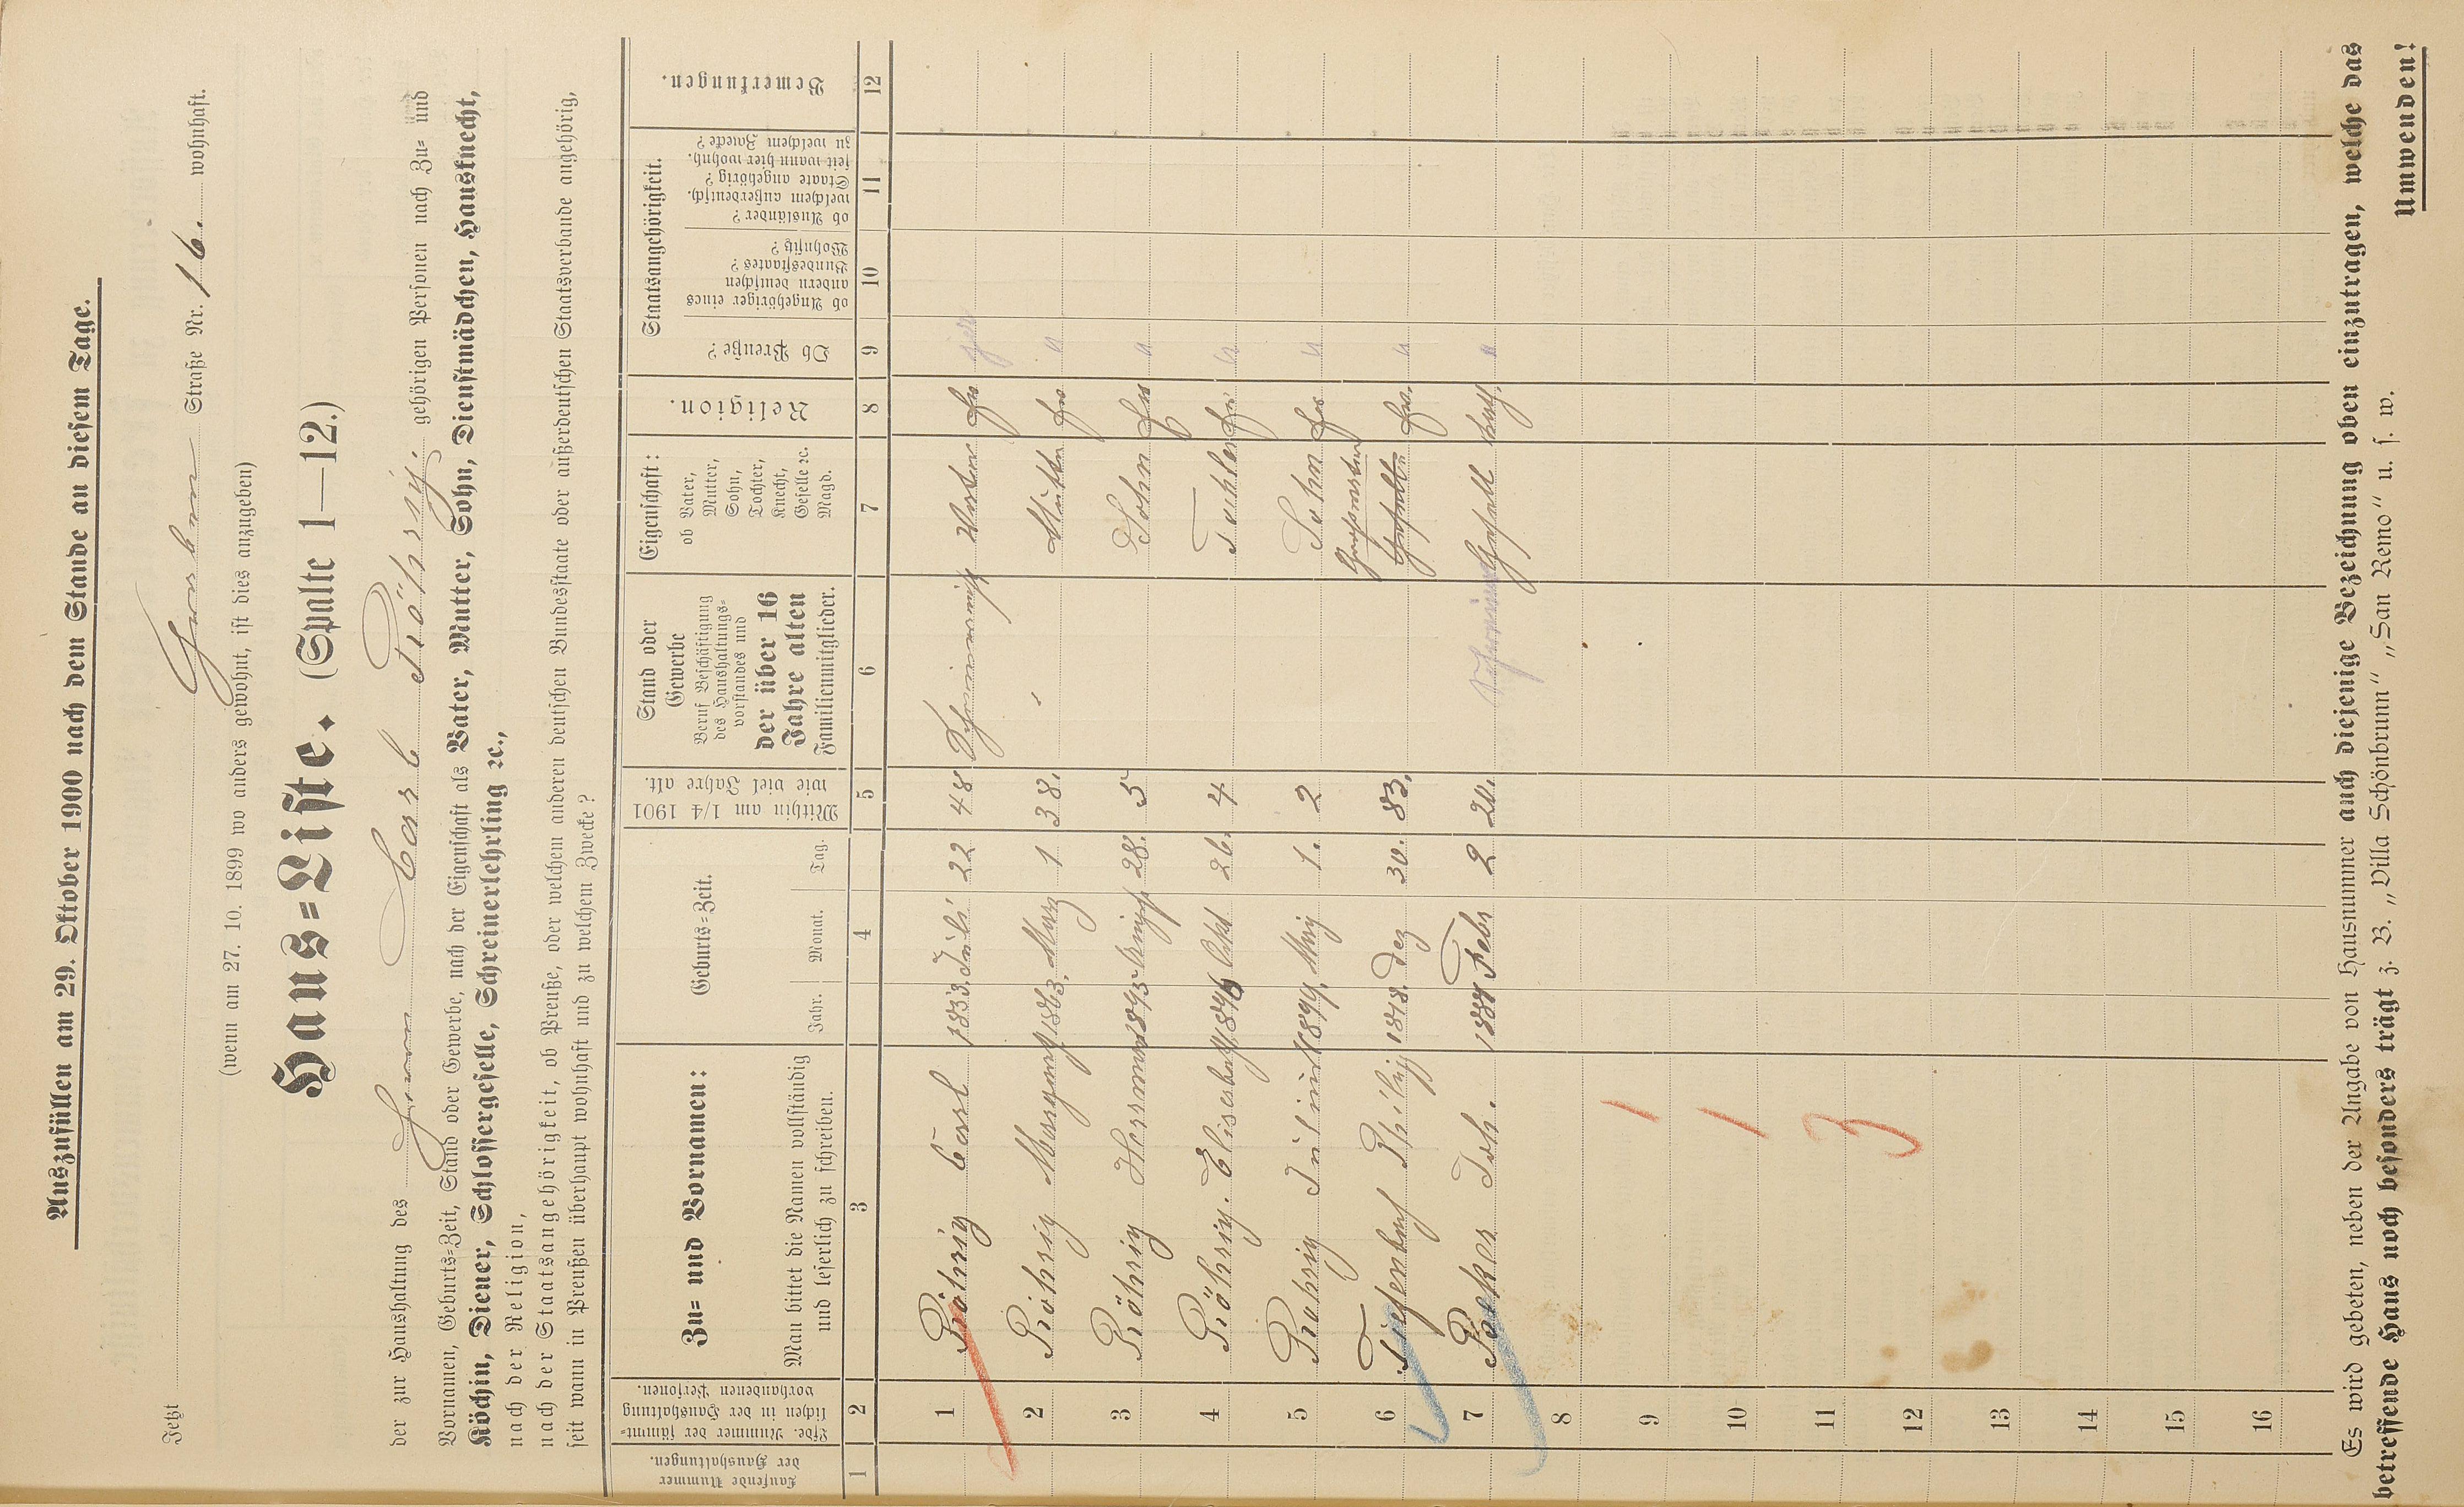 Auszufüllen am 29. Oktober 1900 nach dem Stande an diesem Tage.
Jetzt Graben Straße Nr. 16. wohnhaft.
(wenn am 27. 10. 1899 wo anders gewohnt, ist dies anzugeben)
Haus=Liste. (Spalte 1—12.)
der zur Haushaltung des Herrn Carl Röhrig. gehörigen Personen nach Zu= und
Vornamen, Geburts=Zeit, Stand oder Gewerbe, nach der Eigenschaft als Vater, Mutter, Sohn, Dienstmädchen, Hausknecht,
Köchin, Diener, Schlossergeselle, Schreinerlehrling ꝛc.,
nach der Religion,
nach der Staatsangehörigkeit, ob Preuße, oder welchem anderen deutschen Bundesstaate oder außerdeutschen Staatsverbande angehörig,
seit wann in Preußen überhaupt wohnhaft und zu welchem Zwecke?
Laufende Nummer der Haushaltungen.
Lfde. Nummer der sämmt=lichen in der Haushaltung vorhandenen Personen.
Zu= und Vornamen:
Man bittet die Namen vollständig und leserlich zu schreiben.
Geburts=Zeit.
Jahr. Monat. Tag.
Mithin am 1/4 1901 wie viel Jahre alt.
Stand oder Gewerbe
Beruf Beschäftigung des Haushaltungs=vorstandes und
der über 16 Jahre alten
Familienmitglieder.
Eigenschaft:
ob Vater, Mutter, Sohn, Tochter, Knecht, Geselle ꝛc. Magd.
Religion.
Staatsangehörigkeit.
Ob Preuße?
ob Angehöriger eines andern deutschen Bundesstaates? Wohnsitz?
ob Ausländer? welchem außerdeutsch. Staate angehörig? seit wann hier wohnh. zu welchem Zwecke?
Bemerkungen.
1 2 3 4 5 6 7 8 9 10 11 12
1 Röhrig Carl 1853. Juli 22 48 Vater
2 Röhrig Margareth 1863. März 1 38. Mutter "
3 Röhrig Hermann 1895 28. 5 Sohn "
4 Röhrig. Elisabeth 1896 Okt 26. 4 Tochter "
5 Röhrig Julius 1899. 1. 2 Sohn "
6 Tiefenbach Philipp 1818. Dez 30. 83. "
7 Becker Joh. Febr 2 20. Gesell Kath. "
8
9
10
11
12
13
14
15
16
1
1
3
Es wird gebeten, neben der Angabe von Hausnummer auch diejenige Bezeichnung oben einzutragen, welche das
betreffende Haus noch besonders trägt z. B. „Villa Schönbrunn“ „San Remo“ u. s. w.
Umwenden!